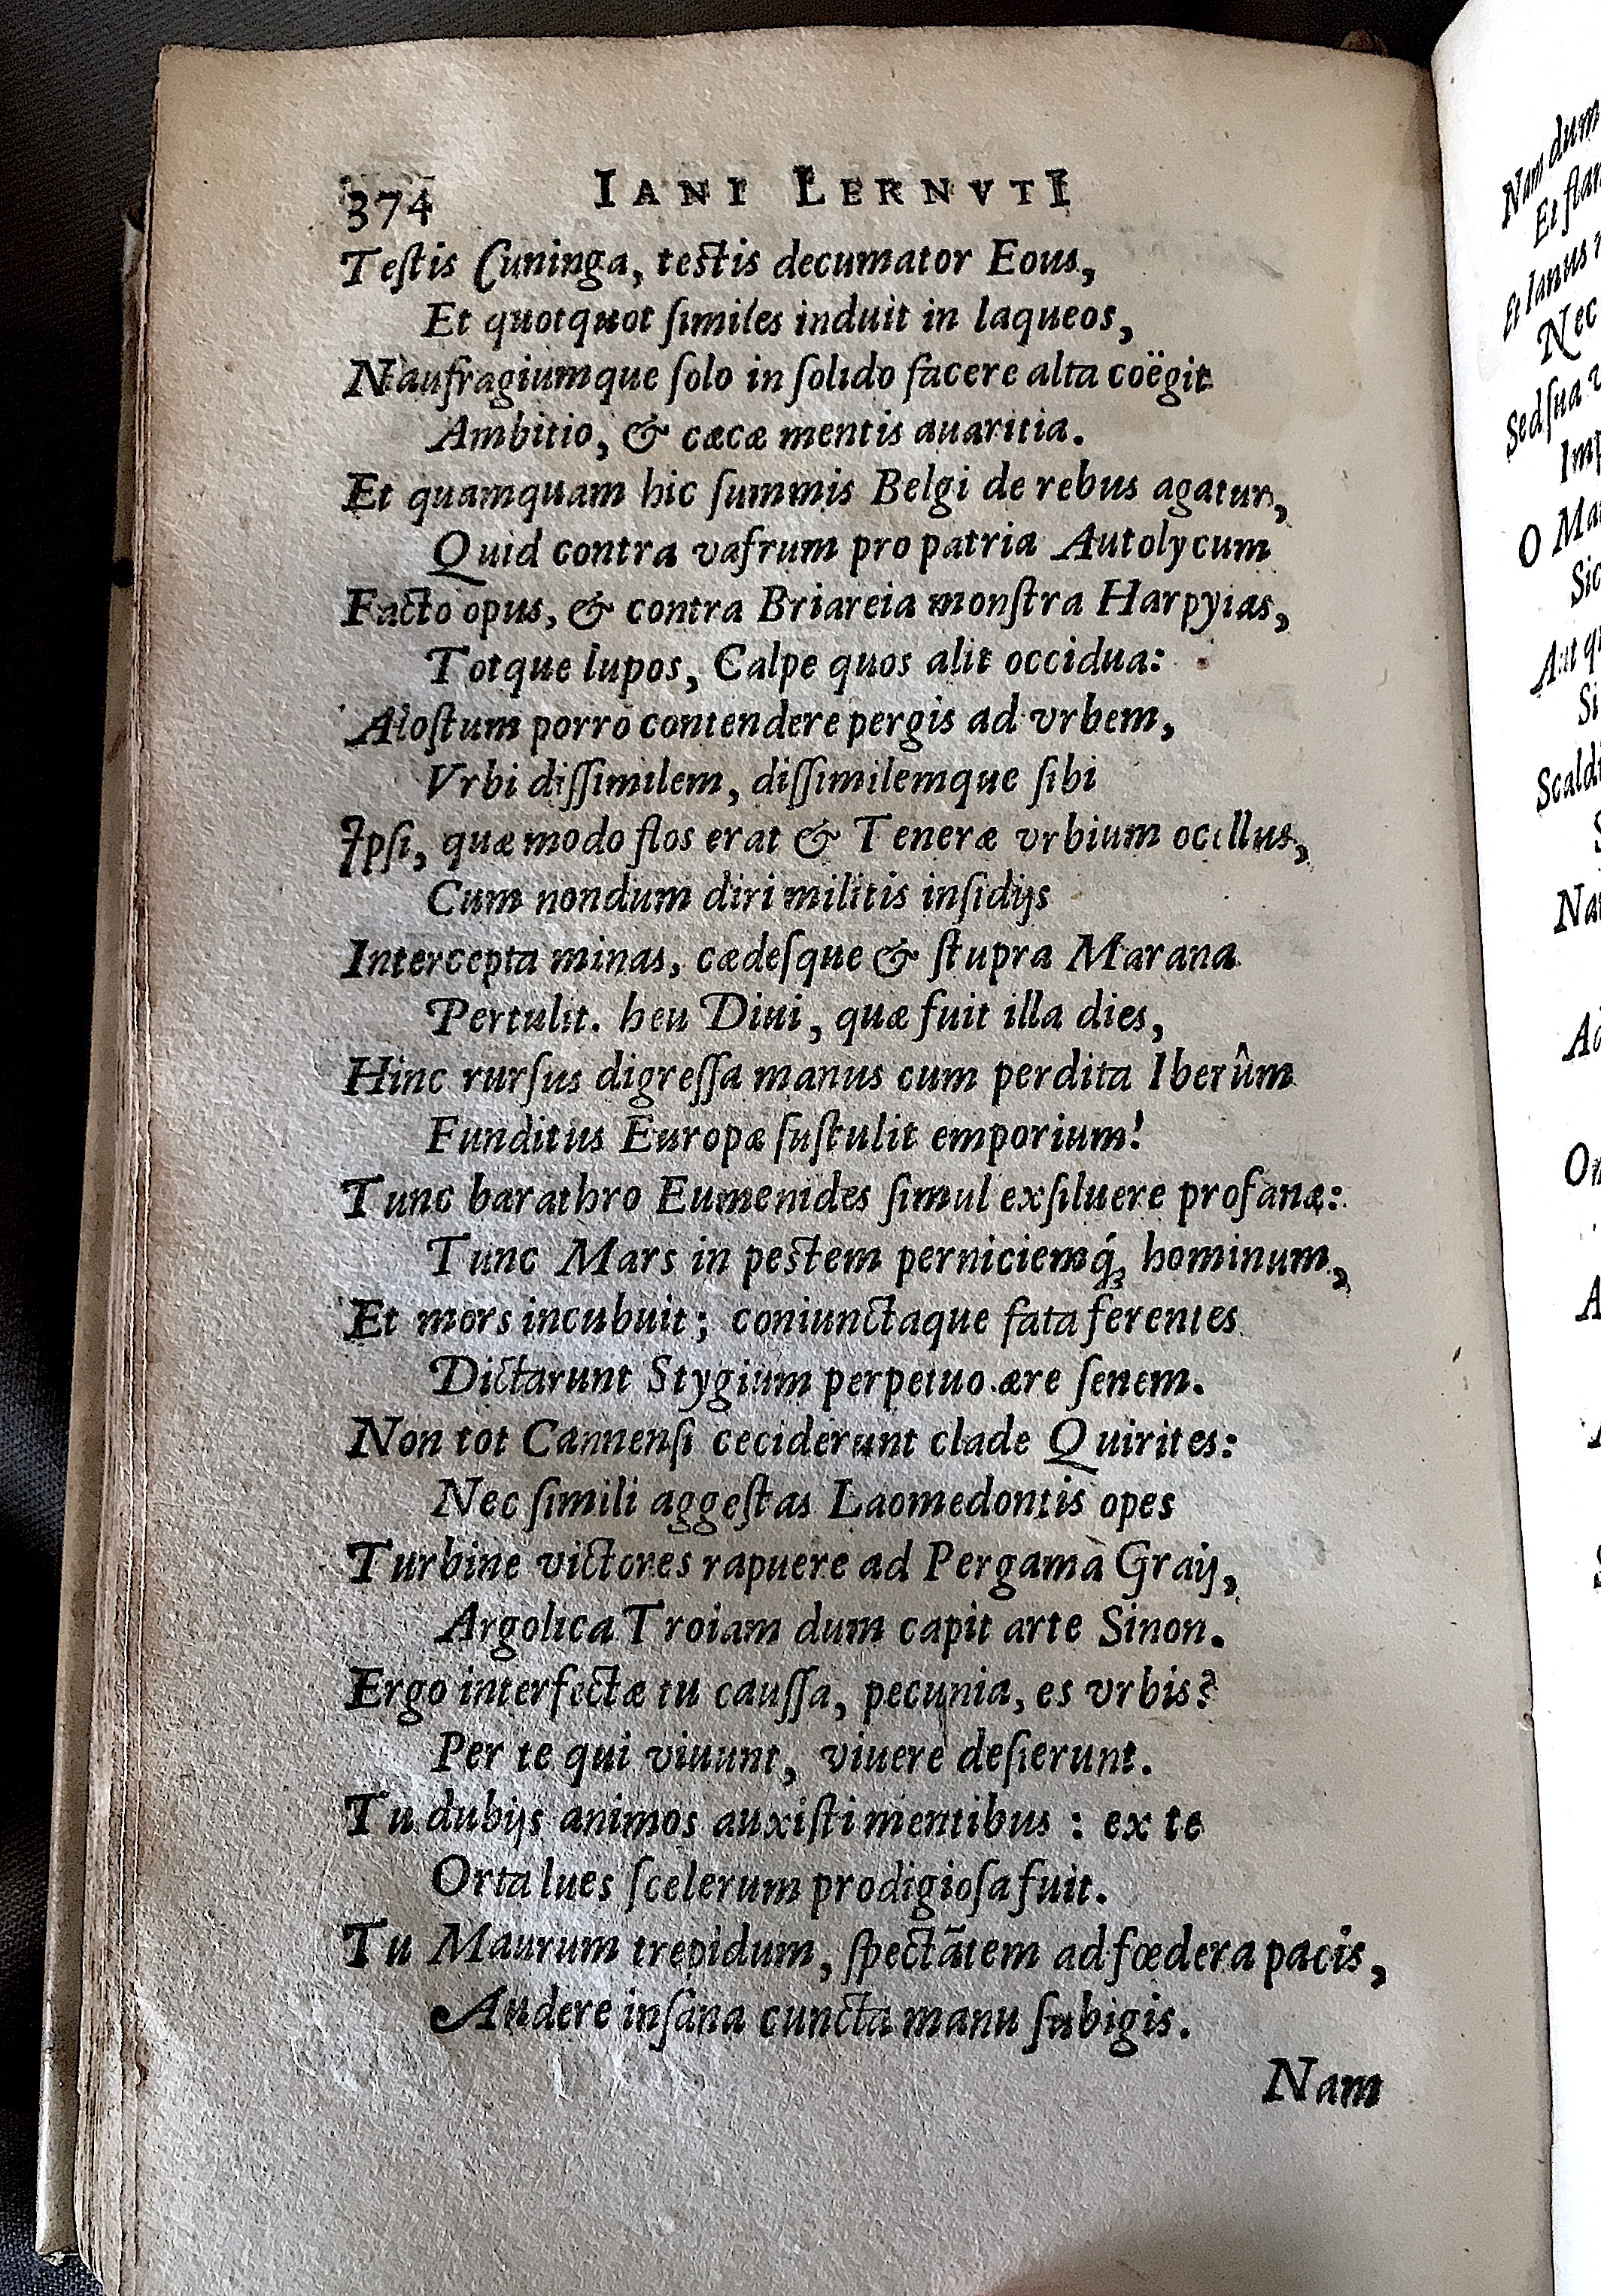 374 IANI LERNVTI
Teſtis Cuninga, teſtis decumator Eous,
Et quotquot ſimiles induit in laqueos,
Naufragiumque ſolo in ſolido facere alta coëgit
Ambitio, & cæcæ mentis auaritia.
Et quamquam hic ſummis Belgi de rebus agatur,
Quid contra vafrum pro patria Autolycum
Facto opus, & contra Briareia monſtra Harpyias,
Totque lupos, Calpe quos alit occidua:
Aloſtum porro contendere pergis ad vrbem,
Vrbi diſſimilem, diſſimilemque ſibi
Ipſi, quæ modo flos erat & Teneræ vrbium ocellus,
Cum nondum diri militis inſidijs
Intercepta minas, cædeſque & ſtupra Marana
Pertulit. heu Diui, quæ fuit illa dies,
Hinc rurſus digreſſa manus cum perdita Iberûm
Funditus Europæ ſuſtulit emporium!
Tunc barathro Eumenides ſimul exſiluere profanæ:
Tunc Mars in peſtem perniciemq́; hominum,
Et mors incubuit; coniunctaque fata ferentes
Dictarunt Stygium perpetuo ære ſenem.
Non tot Cannenſi ceciderunt clade Quirites:
Nec ſimili aggeſtas Laomedontis opes
Turbine victores rapuere ad Pergama Graij,
Argolica Troiam dum capit arte Sinon.
Ergo interfectæ tu cauſſa, pecunia, es vrbis?
Per te qui viuunt, viuere deſierunt.
Tu dubijs animos auxiſti mentibus: ex te
Orta lues ſcelerum prodigioſa fuit.
Tu Maurum trepidum, ſpectãtem ad fœdera pacis,
Audere inſana cuncta manu ſubigis.
Nam
Nam dum
Et
Et Ianus
Nec
Sed ſua
O
Sic